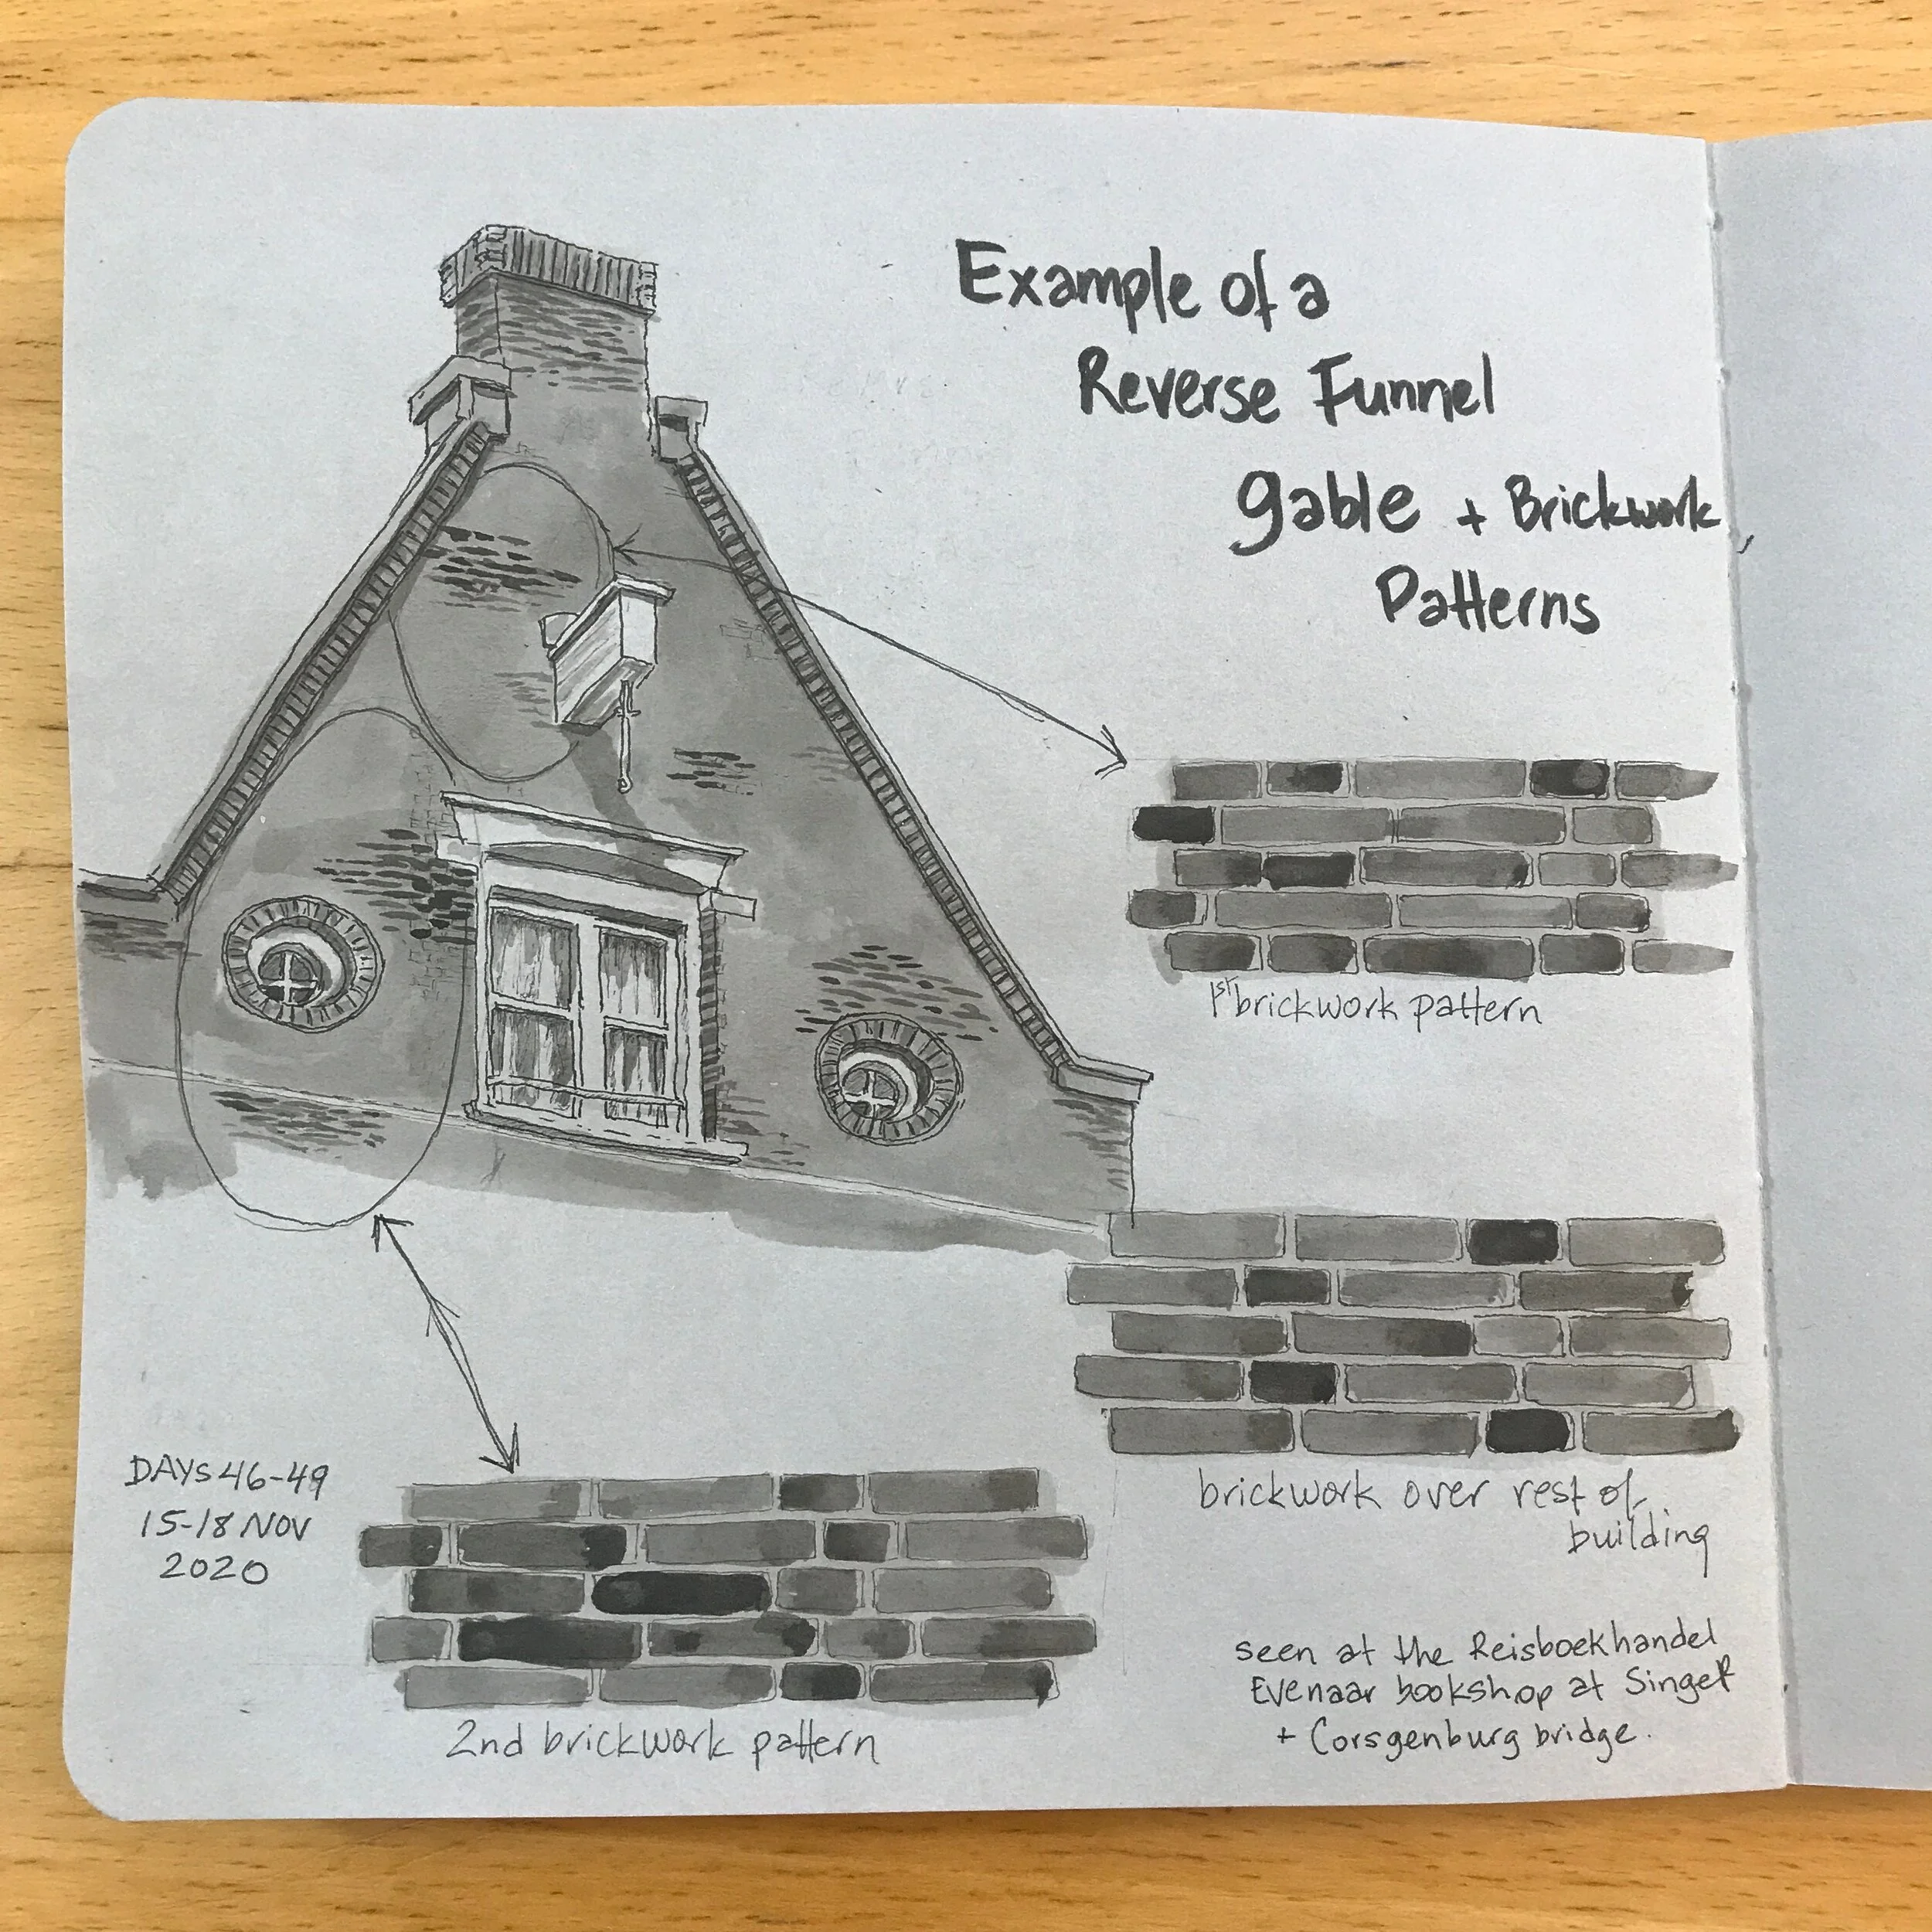 Example of a
Reverse Funnel
gable + Brickwork
Patterns
1st brickwork pattern
brickwork over rest of
building
DAYS 46-49
15-18 NOV
2020
2nd brickwork pattern
seen at the Reisboekhandel
Evenaar bookshop at Singel
+ Corsgenburg bridge.